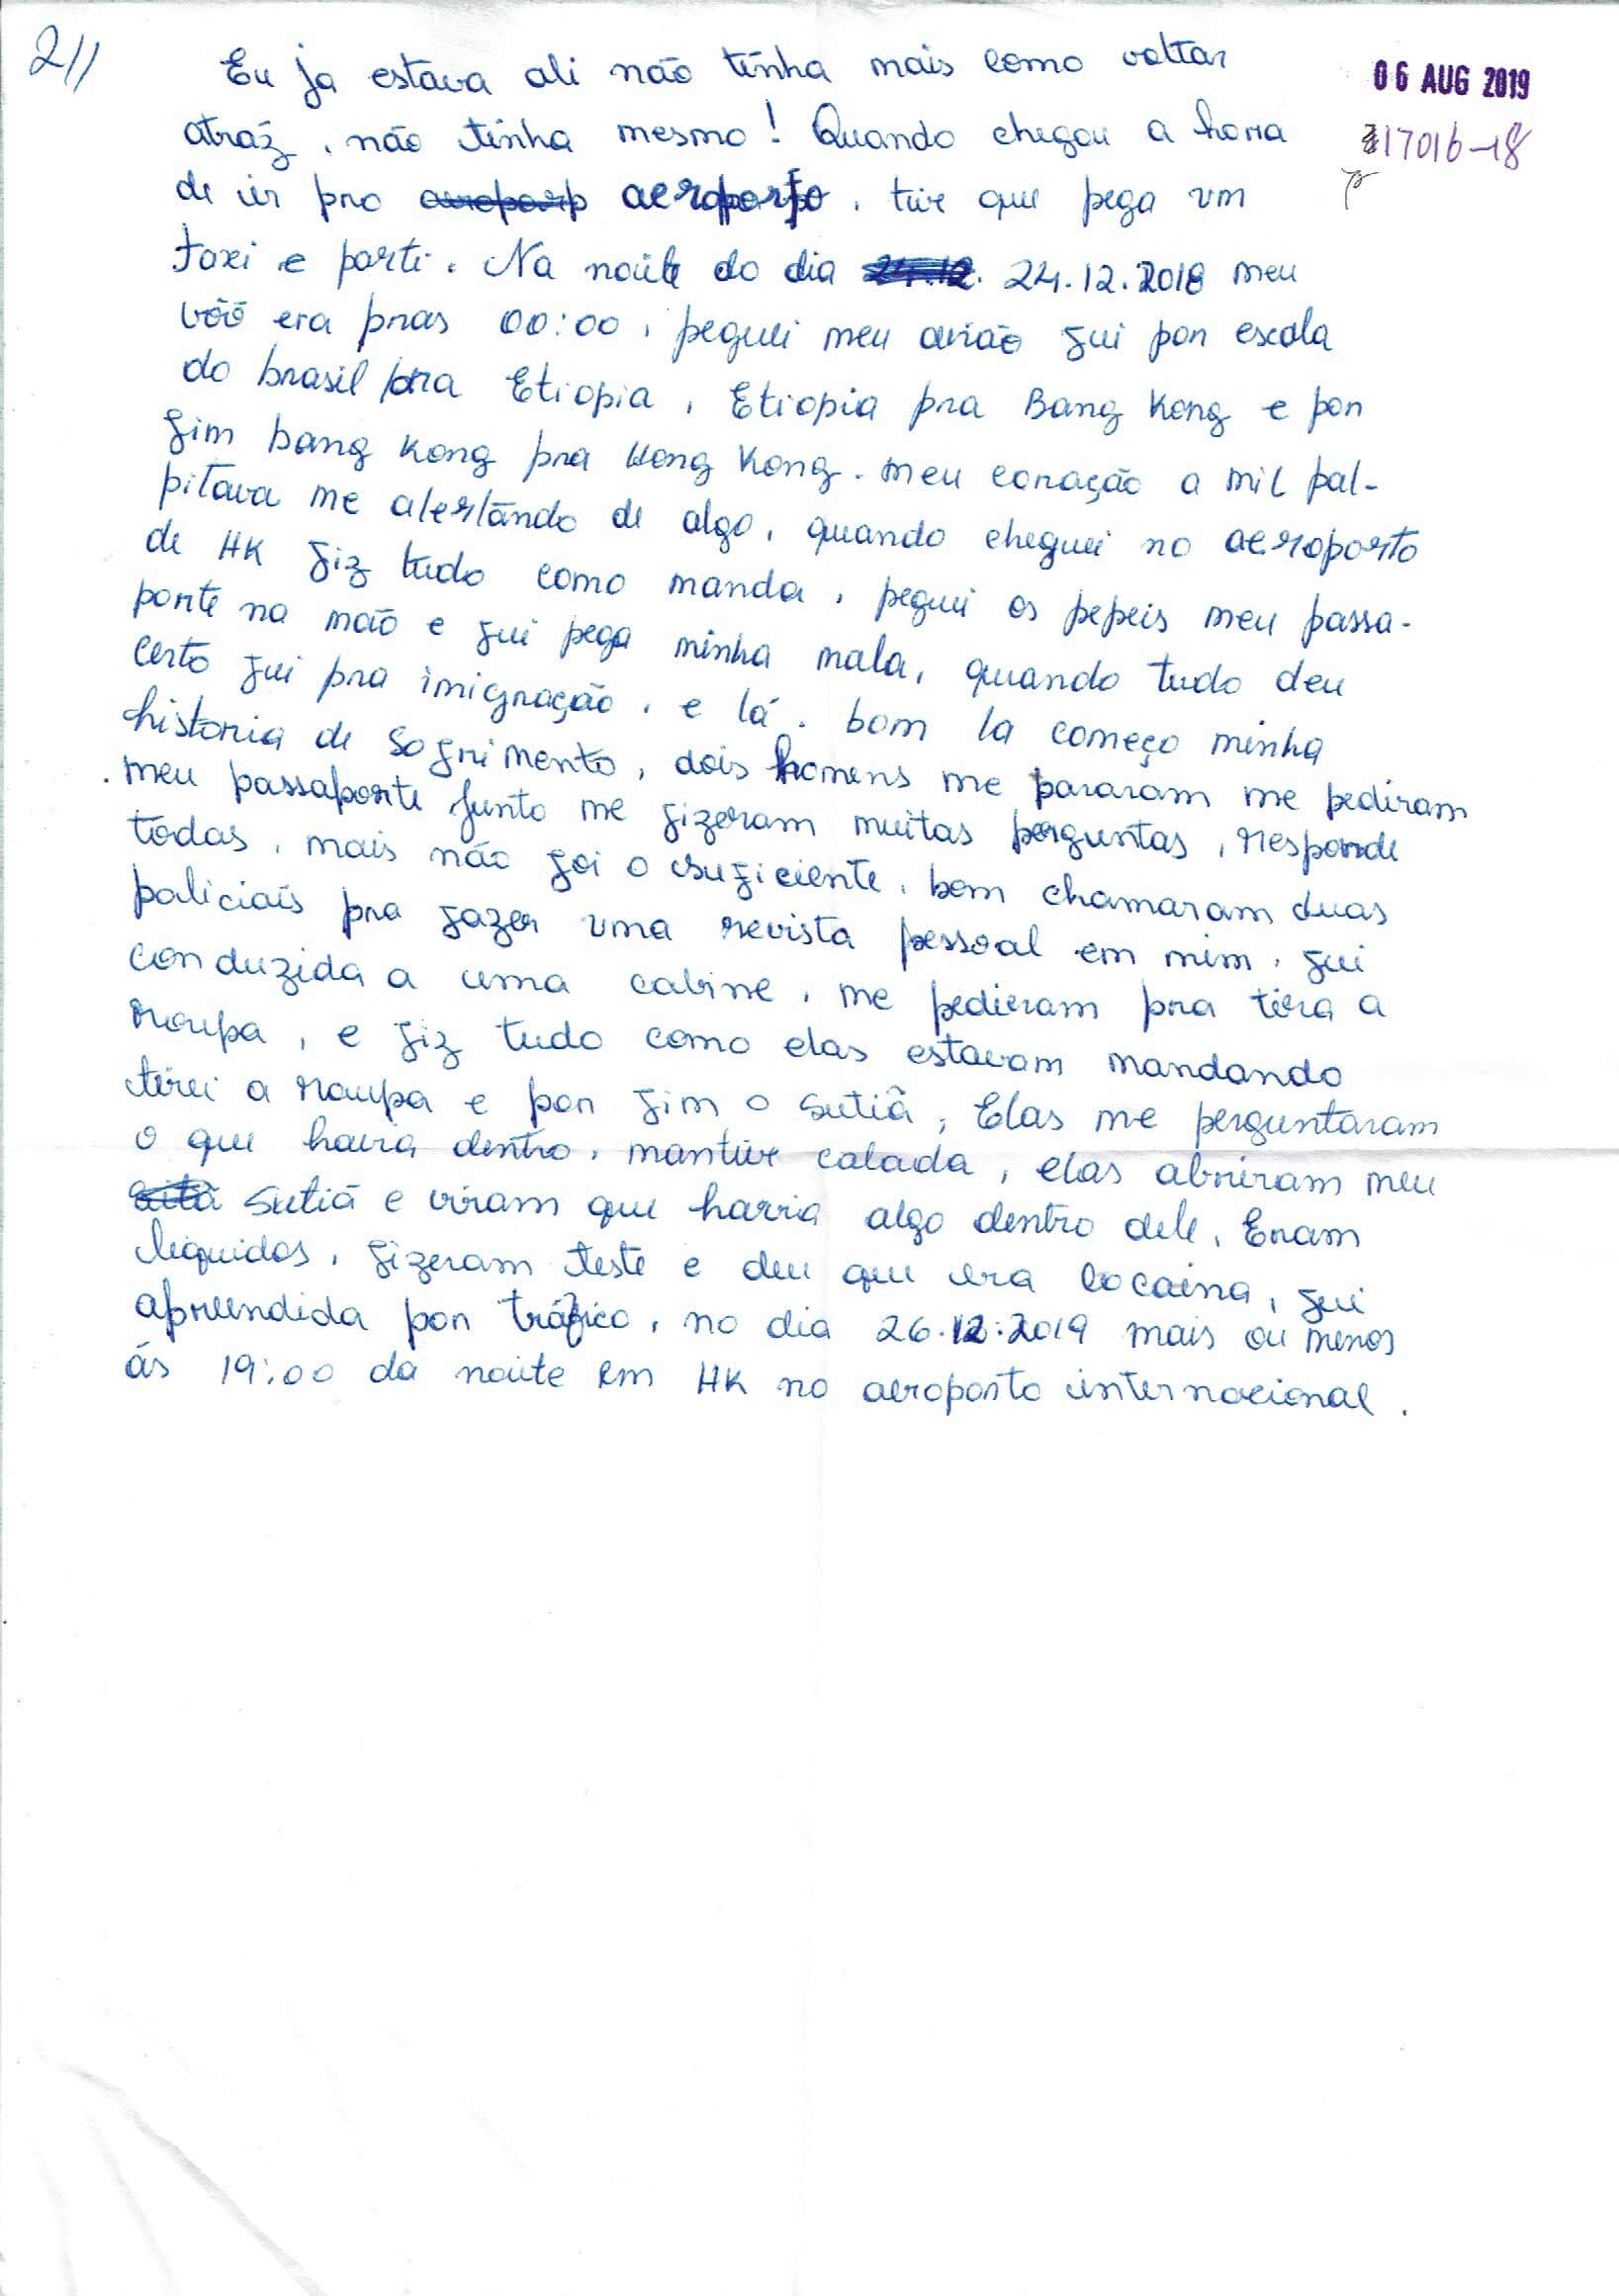 2//
Eu ja estava ali não tinha mais como voltar
06 AUG 2019
atráz, não tinha mesmo! Quando chegou a hora
217016-18
de ir pro aeroporto, tive que pega um
taxi e parti. Na noite do dia 24.12. 24.12.2018 meu
vôô era pras 00:00, peguei meu avião fui por escala
do brasil pra Etiopia, Etiopia pra Bang Kong e por
fim bang Kong pra Hong Kong. meu coração a mil pal-
pitava me alertândo de algo, quando cheguei no aeroporto
de HK fiz tudo como manda, peguei os pepeis meu passa-
porte na mão e fui pega minha mala, quando tudo deu
certo fui pra imigração, e lá. bom la começo minha
historia de sofrimento, dois homens me pararam me pediram
meu passaporte junto me fizeram muitas perguntas, responde
todas, mais não foi o suficiente, bom chamaram duas
policiais pra fazer uma revista pessoal em mim, fui
conduzida a uma cabine, me pediram pra tira a
roupa, e fiz tudo como elas estavam mandando
tirei a roupa e por fim o sutiã, Elas me perguntaram
o que havia dentro, mantive calada, elas abriram meu
sutiã e viram que havia algo dentro dele, Eram
liquidos, fizeram teste e deu que era cocaina, fui
apreendida por tráfico, no dia 26.12.2019 mais ou menos
ás 19:00 da noite em HK no aeroporto internacional.